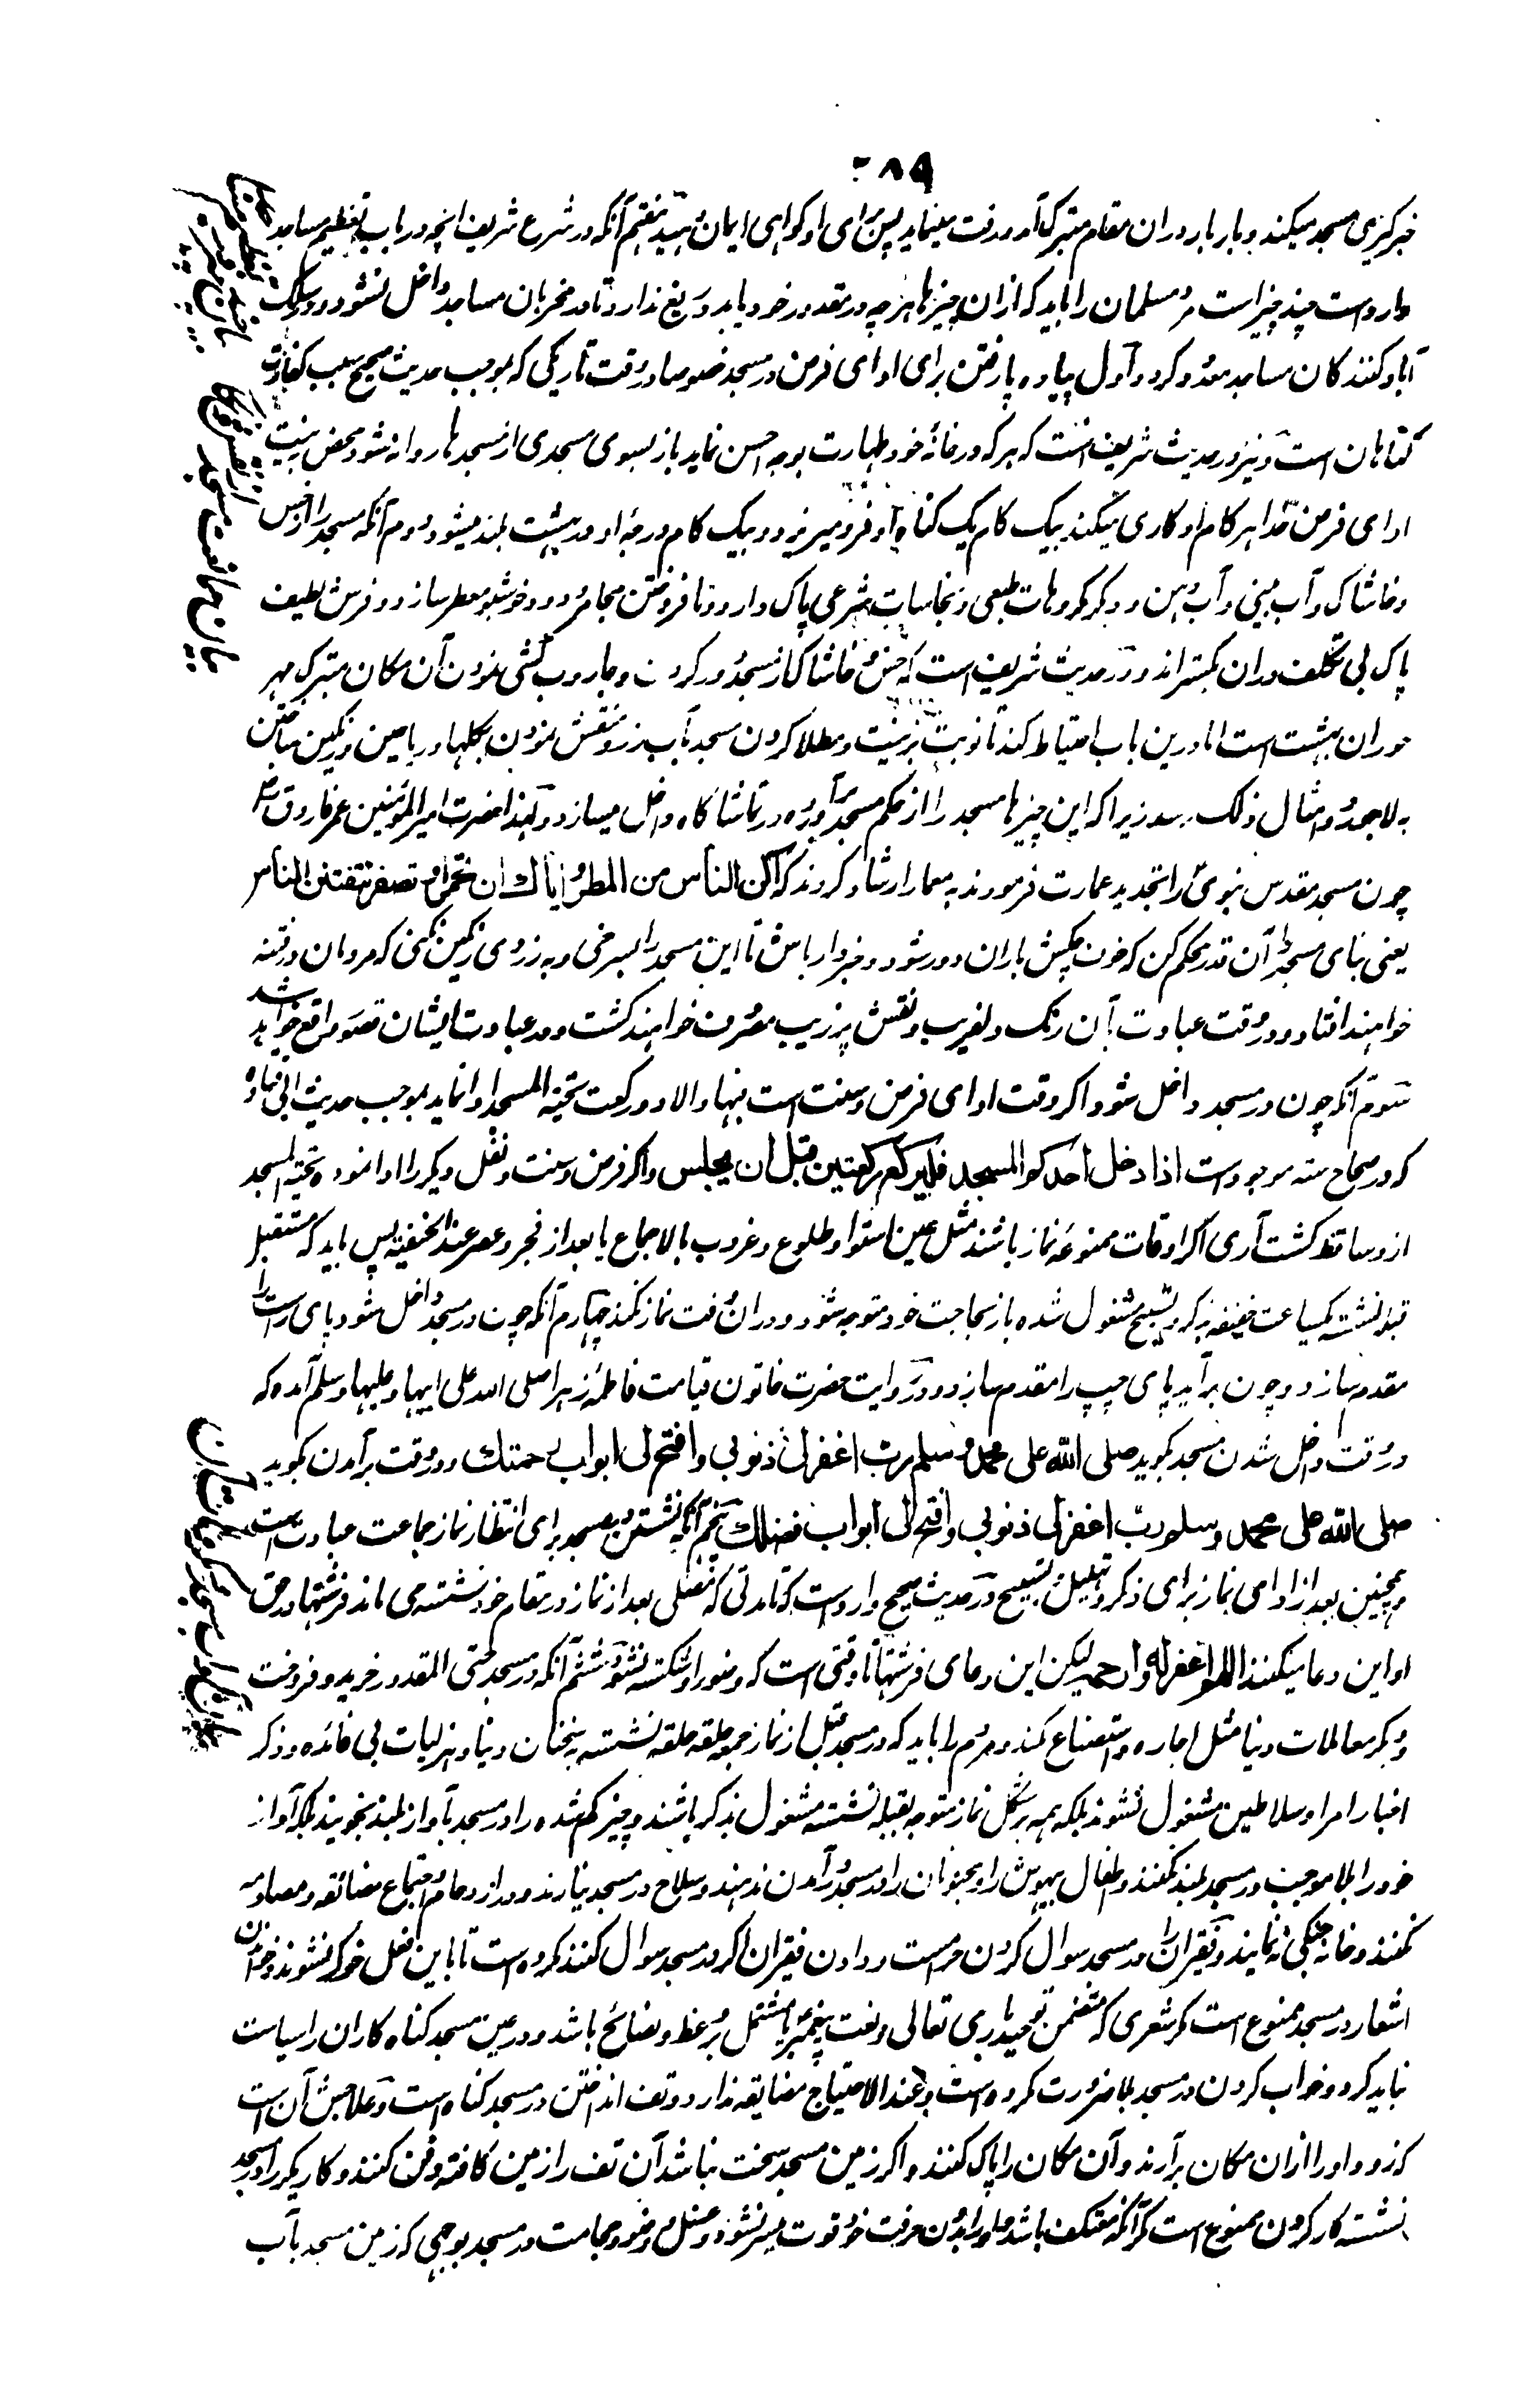 ۵۸۹
خبرگیری مسجد میکند و بار بار دران مقام متبرک آمد و رفت مینماید پس برای او گواهی ایمان بدهید هفتم آنکه در شرع شریف آنچه در باب تعظیم مساجد
وارد است چند چیز است مرد مسلمان را باید که ازان چیزها هرچه در مقدور خود یابد دریغ ندارد تا در مخربان مساجد داخل نشود و در سلک
آباد کنندگان مساجد معدود گردد اول پیاده پا رفتن برای ادای فرض در مسجد خصوصا در وقت تاریکی که بموجب حدیث صحیح سبب کفارت
گناهان است و نیز در حدیث شریف است که هر که در خانهٔ خود طهارت بوجه احسن نماید باز بسوی مسجدی از مسجدها روانه شود محض به نیت
ادای فرض خدا هر گام او کاری میکند بیک گام یک گناه او فرو میریزد و بیک گام درجهٔ او در بهشت بلند میشود دوم آنکه مسجد را از خس
و خاشاک و آب بینی و آب دهن و دیگر مکروهات طبعی و نجاسات شرعی پاک دارد و تا فروختن مجامر و دود خوشبو معطر سازد و فرش لطیف
پاک بی تکلف دران بگستراند و در حدیث شریف است که خس و خاشاک از مسجد دور کردن و جاروب کشی نمودن آن مکان متبرک مهر
حوران بهشت است اما درین باب احتیاط کند تا نوبت بزینت و مطلا کردن مسجد بآب زر و منقش نمودن بگلها و ریاحین و رنگین ساختن
به لاجورد و امثال ذلک رسد زیرا که این چیزها مسجد را از حکم مسجد برآورده در تماشاگاه داخل میسازد و لهذا حضرت امیر المؤمنین عمر فاروق رض
چون مسجد مقدس نبوی را تجدید عمارت فرمودند به معمار ارشاد کردند که اکن الناس من المطر و ایاک ان تحمر او تصفر فتفتن الناس
یعنی بنای مسجد را آن قدر محکم کن که خوف چکیدن باران دور شود و خبردار باش تا این مسجد را بسرخی و به زردی رنگین نکنی که مردمان در فتنه
خواهند افتاد و در وقت عبادت بآن رنگ دلفریب و نقش پرزیب مصروف خواهند گشت و در عبادت ایشان قصور واقع خواهد شد
سوم آنکه چون در مسجد داخل شود اگر وقت ادای فرض و سنت است فبها و الا دو رکعت تحیة المسجد ادا نماید بموجب حدیث ابی قتاده
که در صحاح سته موجود است اذا دخل احدکم المسجد فلیرکع رکعتین قبل ان یجلس و اگر فرض و سنت و نفل دیگر را ادا نموده تحیة المسجد
ازو ساقط گشت آری اگر اوقات ممنوعهٔ نماز باشند مثل عین استوا و طلوع و غروب بالاجماع یا بعد از فجر و عصر عند الحنفیة پس باید که مستقبل
قبله نشسته یکساعت خفیفه بذکر و تسبیح مشغول شده باز بحاجت خود متوجه شود و دران وقت نماز نکند چهارم آنکه چون در مسجد داخل شود پای راست را
مقدم سازد و چون برآید پای چپ را مقدم سازد و در روایت حضرت خاتون قیامت فاطمهٔ زهرا صلی الله علی ابیها و علیها و سلم آمده که
در وقت داخل شدن مسجد بگوید صلی الله علی محمد و سلم رب اغفر لی ذنوبی و افتح لی ابواب رحمتک و در وقت برآمدن بگوید
صلی الله علی محمد و سلم رب اغفر لی ذنوبی و افتح لی ابواب فضلک پنجم آنکه نشستن در مسجد برای انتظار نماز جماعت عبادت است
و همچنین بعد از ادای نماز برای ذکر و تهلیل و تسبیح و در حدیث صحیح وارد است که تا مدتی که مصلی بعد از نماز در مقام خود نشسته می ماند فرشتها در حق
او این دعا میکنند اللهم اغفر له و ارحمه لیکن این دعای فرشتها تا وقتی است که وضو او شکسته نشود ششم آنکه در مسجد حتی المقدور خرید و فروخت
و دیگر معاملات دنیا مثل اجاره و استصناع نکند و مردم را باید که در مسجد قبل از نماز جمعه حلقه حلقه نشسته بسخنان دنیا و هزلیات بی فائده و ذکر
اخبار امرا و سلاطین مشغول نشوند بلکه همه بر شکل نماز متوجه بقبله نشسته مشغول بذکر باشند و چیز گم شده را در مسجد بآواز بلند نجویند بلکه آواز
خود را بلا موجب در مسجد بلند نکنند و اطفال بیهوش را و مجنونان را در مسجد درآمدن ندهند و سلاح در مسجد نیارند و در ازدحام و اجتماع مضائقه و مصادمه
نکنند و خانه جنگی نه نمایند و فقیران را در مسجد سوال کردن حرام است و دادن فقیران اگر در مسجد سوال کنند مکروه است تا باین فعل خوگر نشوند و خواندن
اشعار در مسجد ممنوع است مگر شعری که متضمن توحید باری تعالی و نعت پیغمبر یا مشتمل بر وعظ و نصائح باشد و در عین مسجد گناهکاران را سیاست
نباید کرد و خواب کردن در مسجد بلا ضرورت مکروه است و عند الاحتیاج مضایقه ندارد و تف انداختن در مسجد گناه است و علاجش آن است
که زود او را ازان مکان بردارند و آن مکان را پاک کنند و اگر زمین مسجد سخت نباشد آن تف را زمین کافته دفن کنند و کاریگر را در مسجد
نشسته کار کردن ممنوع است مگر آنکه معتکف باشد و او را بدون حرفت خود قوت میسر نشود و غسل و وضو و حجامت در مسجد بوجهی که زمین مسجد بآب